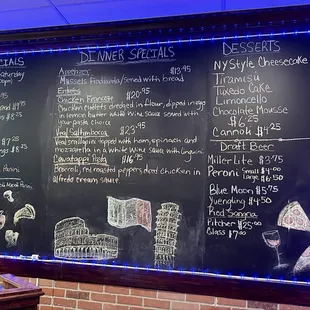 CIALS
Saturday
DINNER SPECIALS
Appetizer
$13.95
Mussels Fradiavola/served with bread
Entrées
Chicken Francese $20.95
Chicken cutlets dredged in flour, dipped in egg
in lemon butter white wine sauce served with
your pasta choice
Veal Saltimbocca $23.95
Veal scallopini topped with ham, spinach and
mozzarella in a white wine sauce with linguini
Cavatappi Pasta $16.95
Broccoli, roasted peppers and diced chicken in
alfredo cream sauce
DESSERTS
NY Style Cheesecake
Tiramisu
Tuxedo Cake
Limoncello
Chocolate Mousse
$6.25
Cannoli $4.25
Draft Beer
Miller Lite $3.75
Peroni Small $4.00
Lg $6.50
Blue Moon $3.75
Yuengling $3.75
Red Sangria
Pitcher $25
Glass $7.00